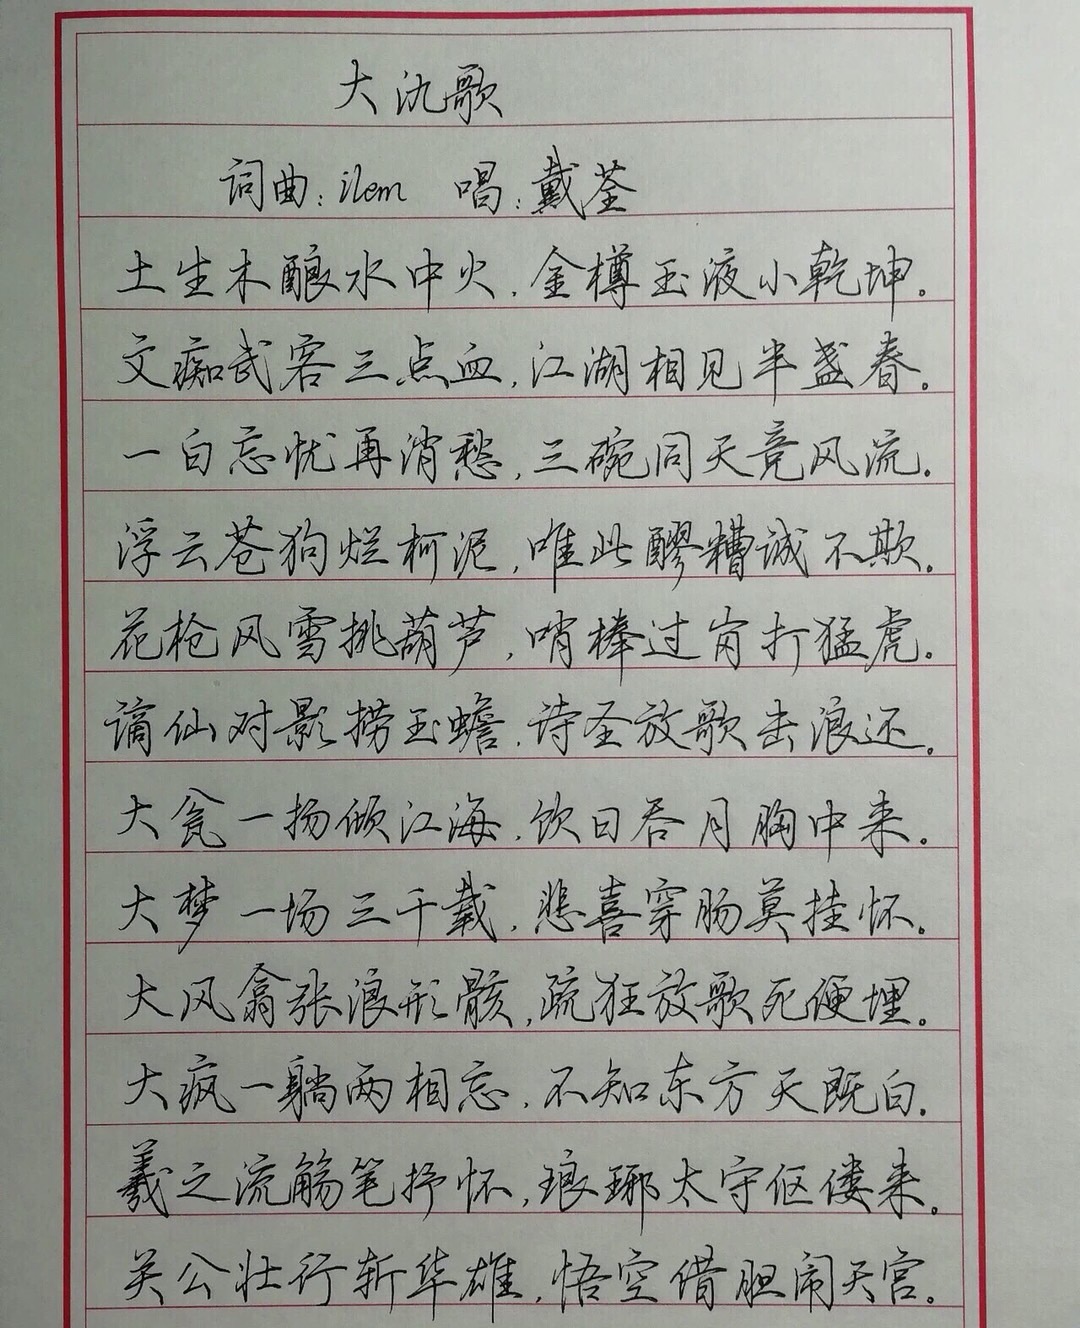 大氿歌
词曲:ilem 唱:戴荃
土生木酿水中火,金樽玉液小乾坤。
文痴武客三点血,江湖相见半盏春。
一白忘忧再消愁,三碗同天竞风流。
浮云苍狗烂柯泥,唯此醪糟诚不欺。
花枪风雪挑葫芦,哨棒过岗打猛虎。
谪仙对影捞玉蟾,诗圣放歌击浪还。
大瓮一扬倾江海,饮日吞月胸中来。
大梦一场三千载,悲喜穿肠莫挂怀。
大风翕张浪形骸,疏狂放歌死便埋。
大疯一躺两相忘,不知东方天既白。
羲之流觞笔抒怀,琅琊太守伛偻来。
关公壮行斩华雄,悟空借胆闹天宫。